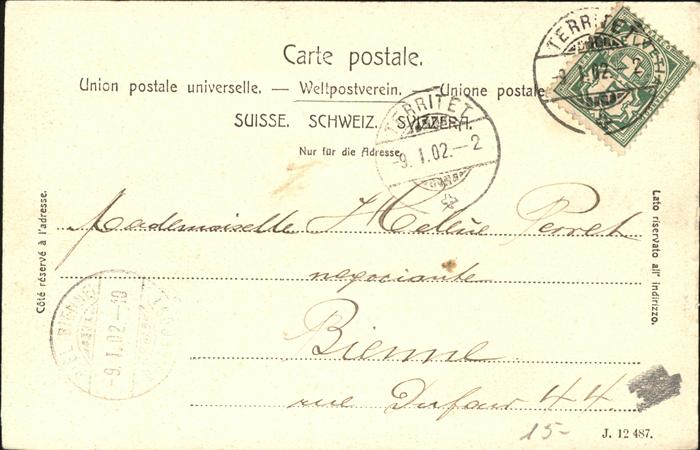 Carte postale.
Union postale universelle. — Weltpostverein. — Unione postale
SUISSE. SCHWEIZ. SVIZZERA.
Nur für die Adresse.
TERRITET
-9. I. 02. -2
TERRITET
-9. I. 02. -2
Côté réservé à l'adresse.
Lato riservato all' indirizzo.
Mademoiselle Hélène Perret
negociante
Bienne
rue Dufour 44.
BIENNE
-9. I. 02. -10
15-
J. 12 487.